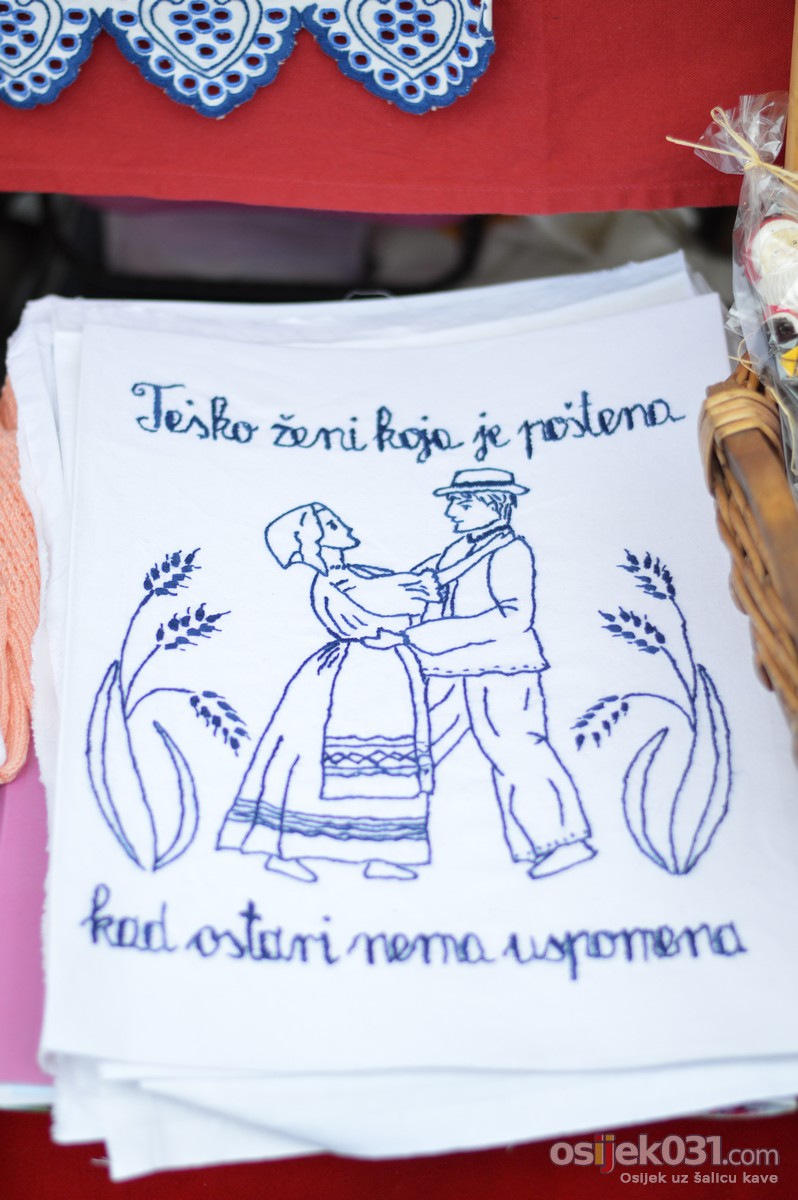 Teško ženi koja je poštena
kad ostari nema uspomena
osijek031.com
Osijek uz šalicu kave